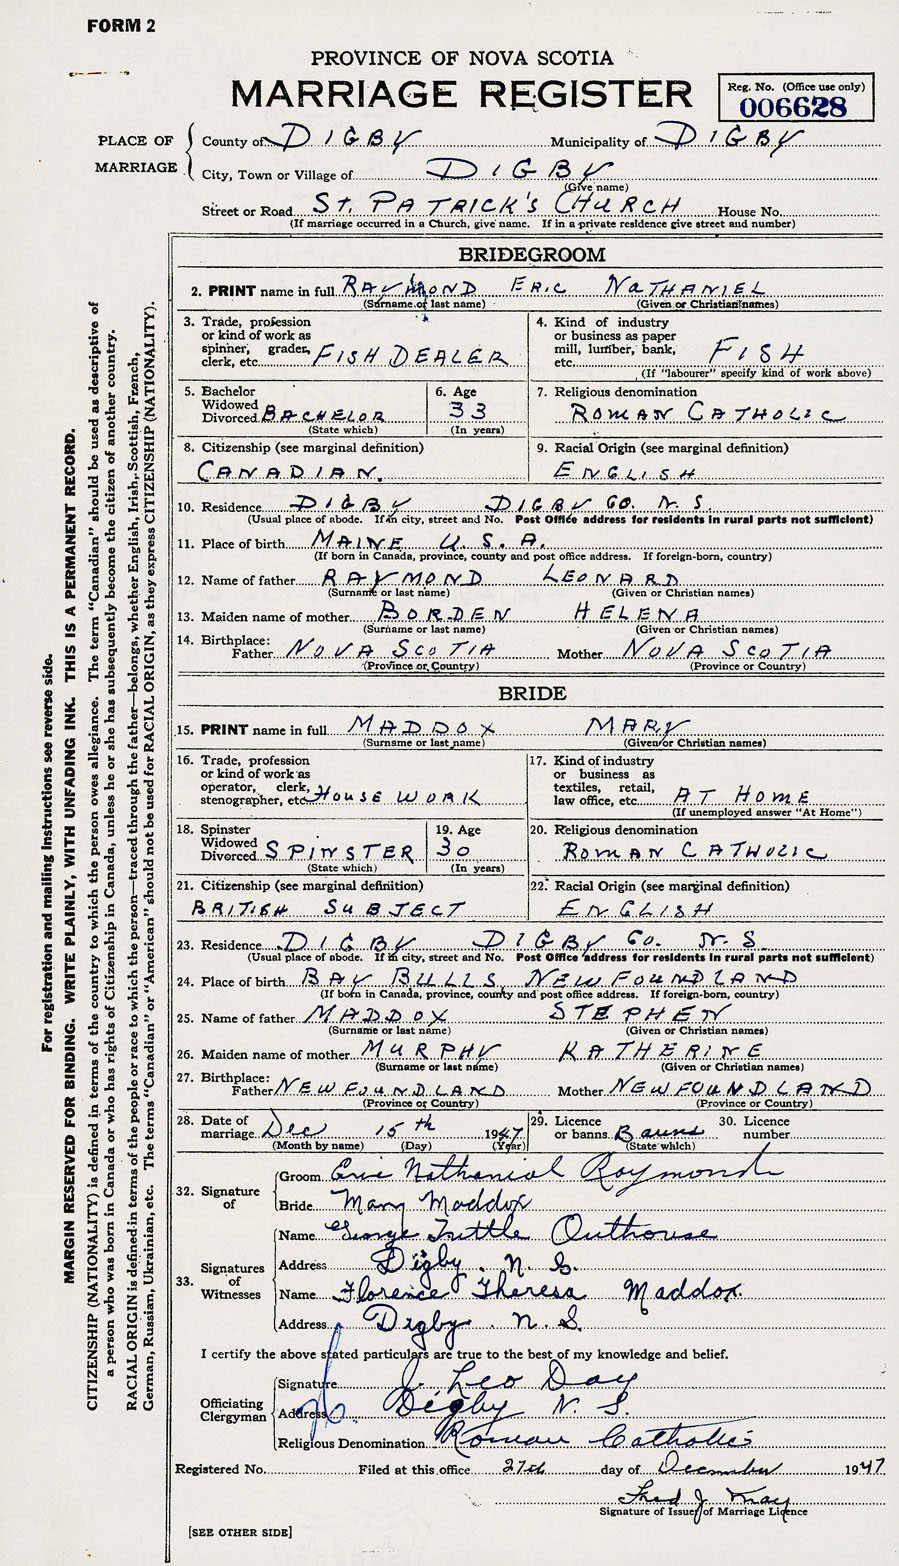 FORM 2
PROVINCE OF NOVA SCOTIA
MARRIAGE REGISTER
Reg. No. (Office use only)
006628
PLACE OF MARRIAGE
County of DIGBY Municipality of DIGBY
City, Town or Village of DIGBY
(Give name)
Street or Road ST. PATRICK'S CHURCH House No.
(If marriage occurred in a Church, give name. If in a private residence give street and number)
BRIDEGROOM
2. PRINT name in full RAYMOND ERIC NATHANIEL
(Surname or last name) (Given or Christian names)
3. Trade, profession or kind of work as spinner, grader, clerk, etc. FISH DEALER
4. Kind of industry or business as paper mill, lumber, bank, etc. FISH
(If "labourer" specify kind of work above)
5. Bachelor Widowed Divorced BACHELOR
(State which)
6. Age 33
(In years)
7. Religious denomination
ROMAN CATHOLIC
8. Citizenship (see marginal definition)
CANADIAN.
9. Racial Origin (see marginal definition)
ENGLISH
10. Residence DIGBY DIGBY CO. N.S.
(Usual place of abode. If in city, street and No. Post Office address for residents in rural parts not sufficient)
11. Place of birth MAINE U.S.A.
(If born in Canada, province, county and post office address. If foreign-born, country)
12. Name of father RAYMOND LEONARD
(Surname or last name) (Given or Christian names)
13. Maiden name of mother BORDEN HELENA
(Surname or last name) (Given or Christian names)
14. Birthplace:
Father NOVA SCOTIA Mother NOVA SCOTIA
(Province or Country) (Province or Country)
BRIDE
15. PRINT name in full MADDOX MARY
(Surname or last name) (Given or Christian names)
16. Trade, profession or kind of work as operator, clerk, stenographer, etc. HOUSE WORK
17. Kind of industry or business as textiles, retail, law office, etc. AT HOME
(If unemployed answer "At Home")
18. Spinster Widowed Divorced SPINSTER
(State which)
19. Age 30
(In years)
20. Religious denomination
ROMAN CATHOLIC
21. Citizenship (see marginal definition)
BRITISH SUBJECT
22. Racial Origin (see marginal definition)
ENGLISH
23. Residence DIGBY DIGBY CO. N.S.
(Usual place of abode. If in city, street and No. Post Office address for residents in rural parts not sufficient)
24. Place of birth BAY BULLS, NEWFOUNDLAND
(If born in Canada, province, county and post office address. If foreign-born, country)
25. Name of father MADDOX STEPHEN
(Surname or last name) (Given or Christian names)
26. Maiden name of mother MURPHY KATHERINE
(Surname or last name) (Given or Christian names)
27. Birthplace:
Father NEWFOUNDLAND Mother NEWFOUNDLAND
(Province or Country) (Province or Country)
28. Date of marriage Dec 15th 1947
(Month by name) (Day) (Year)
29. Licence or banns Banns
(State which)
30. Licence number
32. Signature of
Groom Eric Nathanial Raymond
Bride Mary Maddox
33. Signatures of Witnesses
Name George Tuttle Outhouse
Address Digby. N.S.
Name Florence Theresa Maddox.
Address Digby. N.S.
I certify the above stated particulars are true to the best of my knowledge and belief.
Officiating Clergyman
Signature J. Leo Day
Address Digby N.S.
Religious Denomination Roman Catholic
Registered No. Filed at this office 27th day of December 1947
Fred J. May
Signature of Issuer of Marriage Licence
[SEE OTHER SIDE]
For registration and mailing instructions see reverse side.
MARGIN RESERVED FOR BINDING. WRITE PLAINLY, WITH UNFADING INK. THIS IS A PERMANENT RECORD.
CITIZENSHIP (NATIONALITY) is defined in terms of the country to which the person owes allegiance. The term "Canadian" should be used as descriptive of
a person who was born in Canada or who has rights of Citizenship in Canada, unless he or she has subsequently become the citizen of another country.
RACIAL ORIGIN is defined in terms of the people or race to which the person—traced through the father—belongs, whether English, Irish, Scottish, French,
German, Russian, Ukrainian, etc. The terms "Canadian" or "American" should not be used for RACIAL ORIGIN, as they express CITIZENSHIP (NATIONALITY).